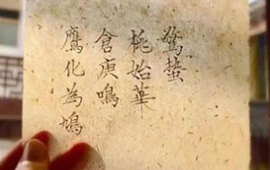 驚蟄
桃始華
倉庚鳴
鷹化為鳩